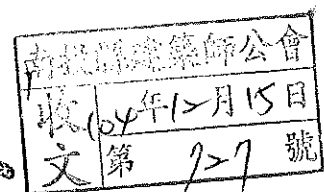 南投縣建築師公會
收文
104年12月15日
第 727 號